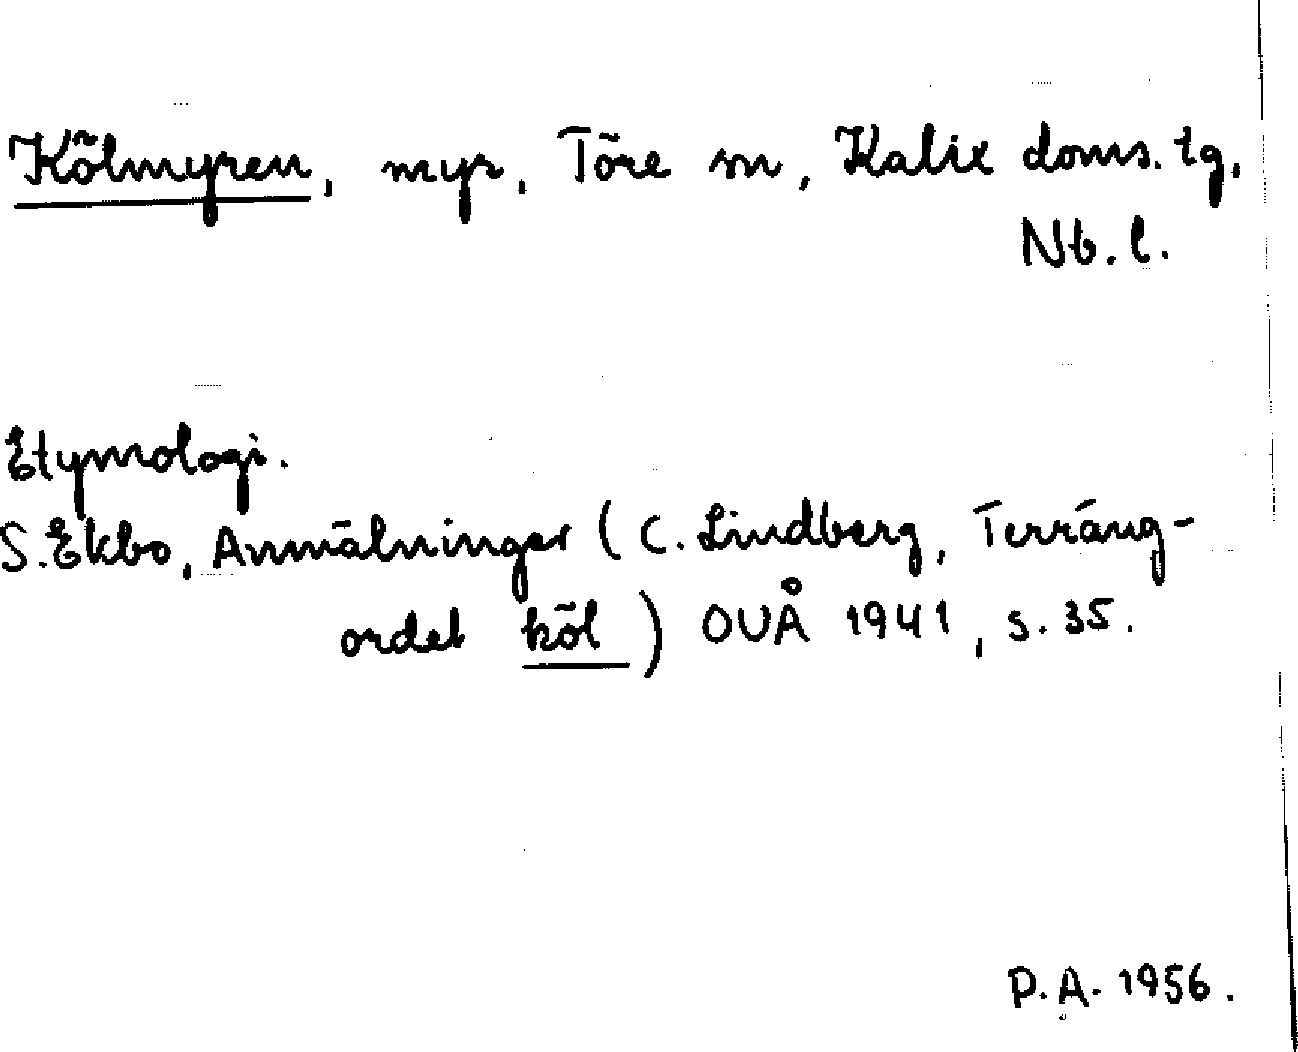 Kölmyren, myr, Töre sn, Kalix doms. tg,
Nb. l.
Etymologi.
S. Ekbo, Anmälningar (C. Lindberg, Terräng-
ordet köl) OUÅ 1941, s. 35.
P. A. 1956.